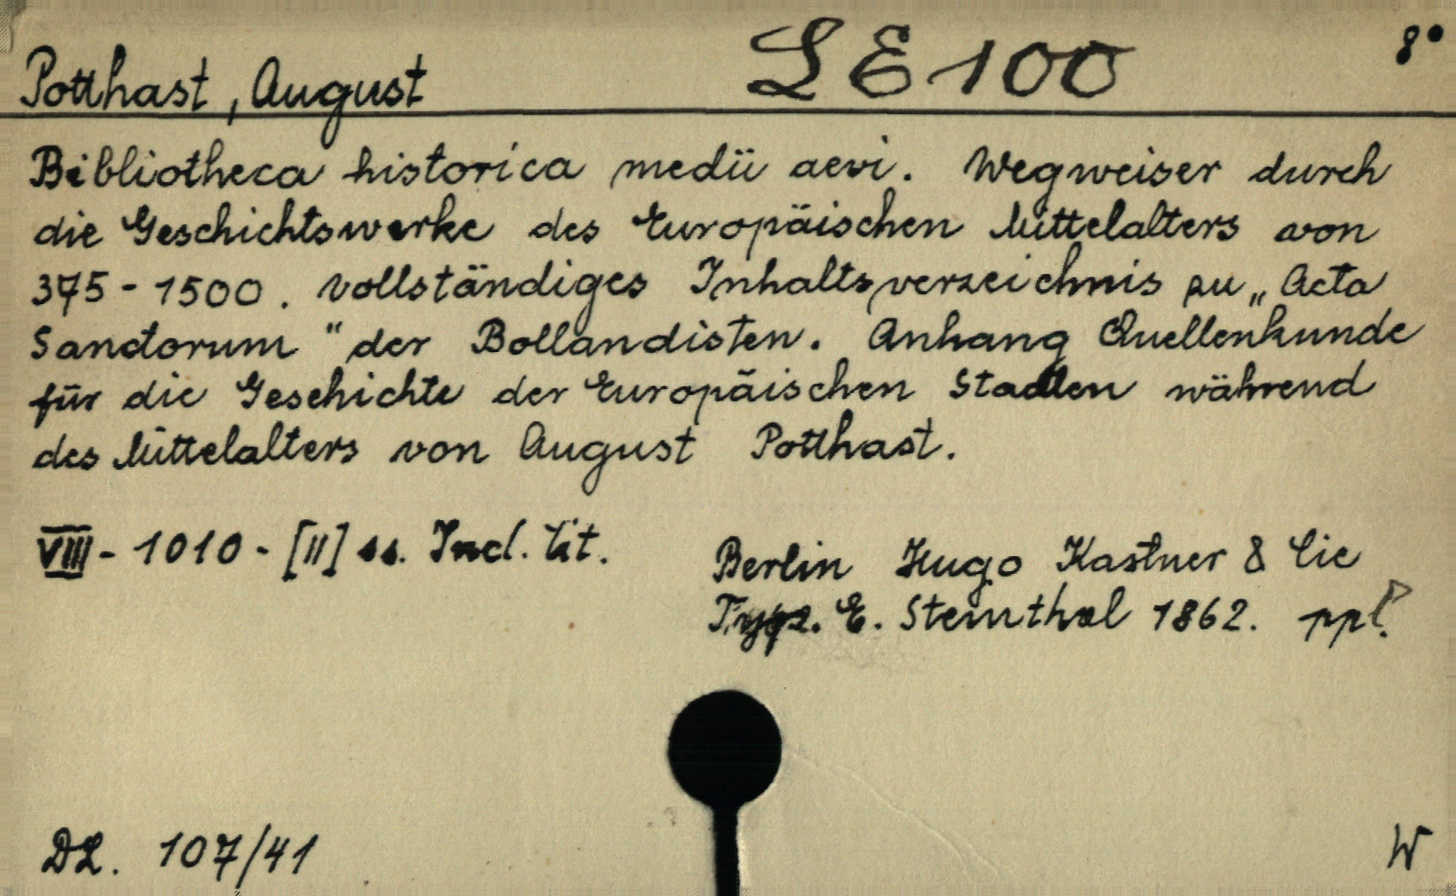 Potthast, August LE 100 8°
Bibliotheca historica medii aevi. Wegweiser durch
die Geschichtswerke des Europäischen Mittelalters von
375-1500. Vollständiges Inhaltsverzeichnis zu „Acta
Sanctorum" der Bollandisten. Anhang Quellenkunde
für die Geschichte der Europäischen Staaten während
des Mittelalters von August Potthast.
VIII - 1010 - [II] ss. Incl. tit.
Berlin Hugo Kastner & Cie
E. Steinthal 1862. ppł.
DL. 107/41 W